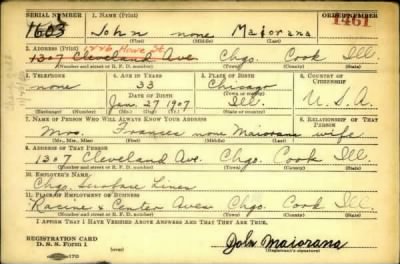 SERIAL NUMBER 1. NAME (Print) ORDER NUMBER
1603 John none Maiorana 1461
(First) (Middle) (Last)
2. ADDRESS (Print) 1226 Howe St.
1307 Cleveland Ave. Chgo. Cook Ill
(Number and street or R. F. D. number) (Town) (County) (State)
3. TELEPHONE 4. AGE IN YEARS 5. PLACE OF BIRTH 6. COUNTRY OF CITIZENSHIP
none 33 Chicago
DATE OF BIRTH (Town or county)
Jan. 27 1907 Ill. U.S.A.
(Exchange) (Number) (Mo.) (Day) (Yr.) (State or country)
7. NAME OF PERSON WHO WILL ALWAYS KNOW YOUR ADDRESS 8. RELATIONSHIP OF THAT PERSON
Mrs. Frances none Maiorana wife
(Mr., Mrs., Miss) (First) (Middle) (Last)
9. ADDRESS OF THAT PERSON
1307 Cleveland Ave. Chgo. Cook Ill.
(Number and street or R. F. D. number) (Town) (County) (State)
10. EMPLOYER'S NAME
Chgo. Surface Lines
11. PLACE OF EMPLOYMENT OR BUSINESS
Racine & Center Aves Chgo. Cook Ill
(Number and street or R. F. D. number) (Town) (County) (State)
I AFFIRM THAT I HAVE VERIFIED ABOVE ANSWERS AND THAT THEY ARE TRUE.
REGISTRATION CARD
D. S. S. Form 1 (over) John Maiorana
(Registrant's signature)